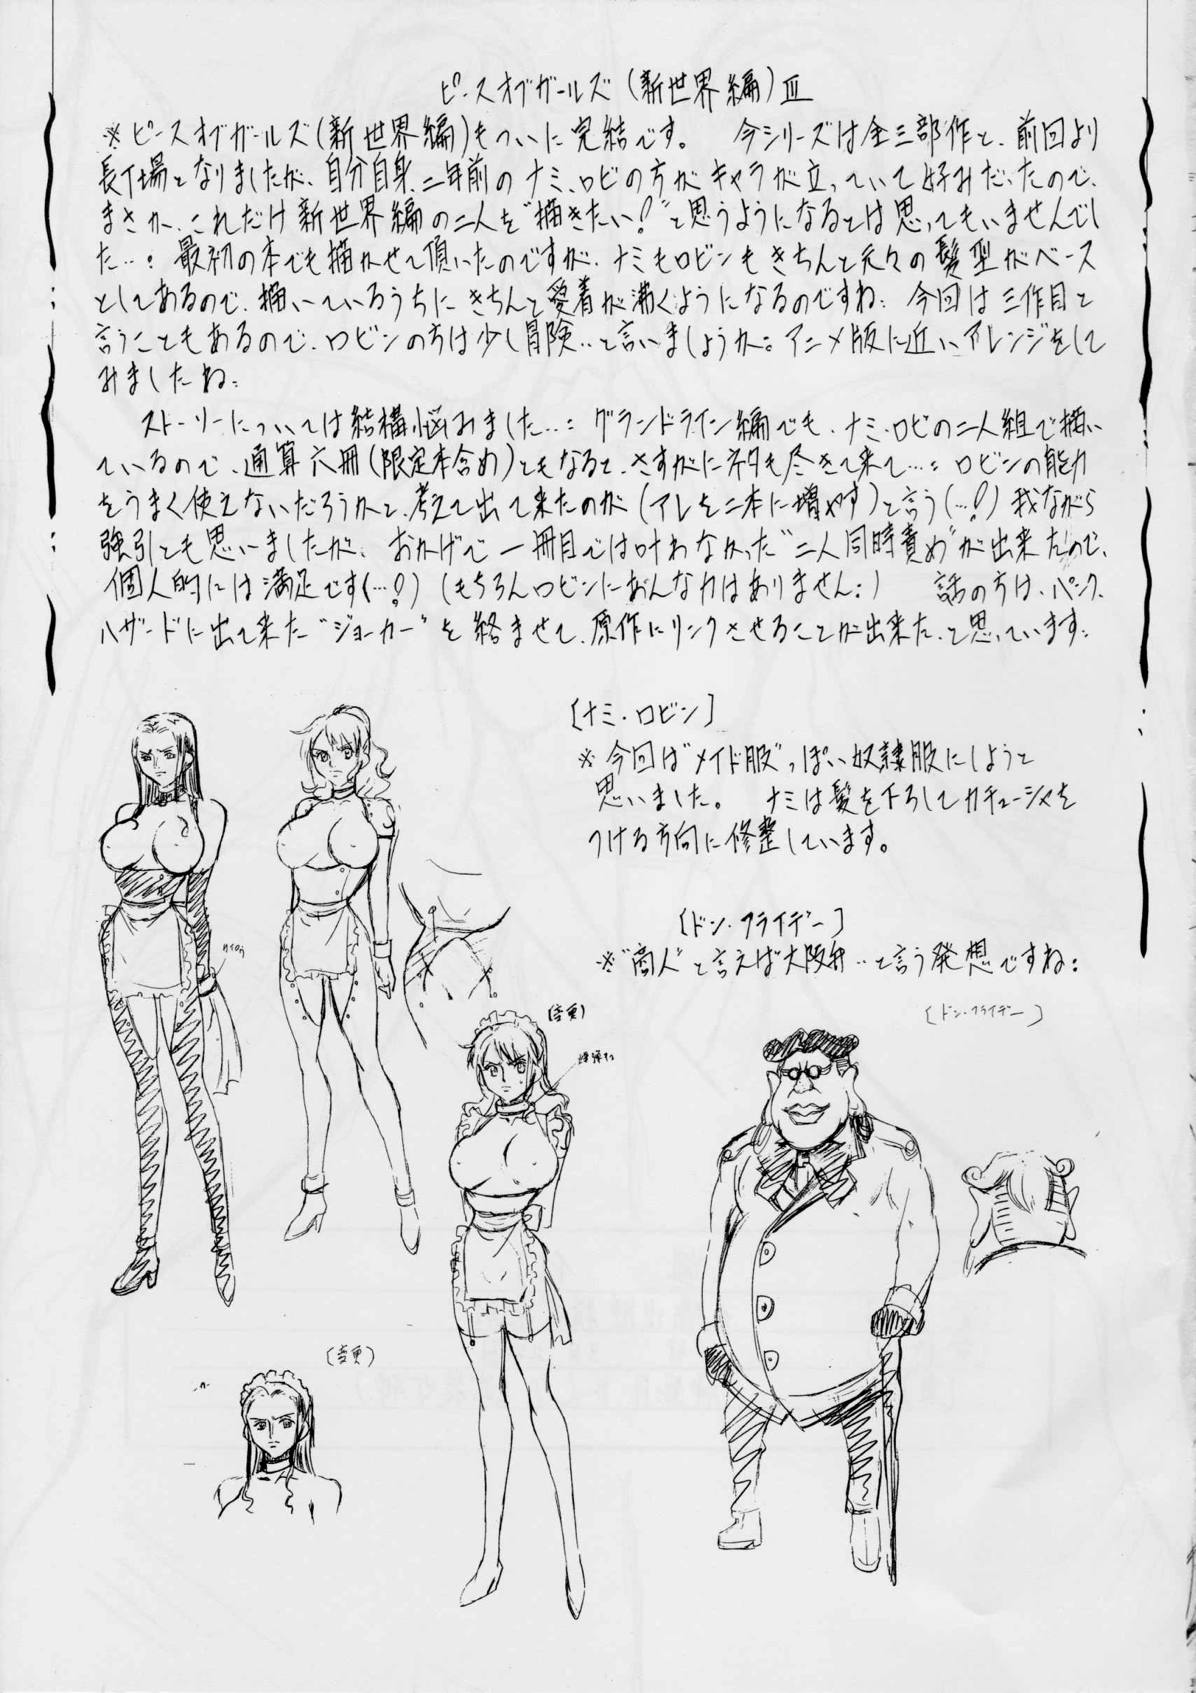 ピースオブガールズ(新世界編)Ⅲ
※ピースオブガールズ(新世界編)もついに完結です。 今シリーズは全三部作と、前回より
長丁場となりましたが、自分自身、二年前のナミ、ロビの方がキャラが立っていて好みだったので、
まさか、これだけ新世界編の二人を“描きたい!”と思うようになるとは思ってもいませんでし
た…: 最初の本でも描かせて頂いたのですが、ナミもロビンもきちんと元々の髪型がベース
としてあるので、描いているうちにきちんと愛着が沸くようになるのですね: 今回は三作目と
言うこともあるので、ロビンの方は少し冒険‥と言いましょうか: アニメ版に近いアレンジをして
みましたね:
ストーリーについては結構悩みました…: グランドライン編でも、ナミ・ロビの二人組で描い
ているので、通算六冊(限定本含め)ともなると、さすがにネタも尽きて来て…: ロビンの能力
をうまく使えないだろうかと、考えて出て来たのが(アレを二本に増やす)と言う(…!)我ながら
強引とも思いましたが、おかげで一冊目では叶わなかった“二人同時責め”が出来たので、
個人的には満足です(…!)(もちろんロビンにあんな力はありません:) 話の方は、パンク、
ハザードに出て来た“ジョーカー”を絡ませて、原作にリンクさせることが出来た、と思っています:
[ナミ・ロビン]
※今回は“メイド服”っぽい奴隷服にしようと
思いました。 ナミは髪を下ろしてカチューシャを
つける方向に修整しています。
[ドン・フライデー]
※“商人”と言えば大阪弁‥と言う発想ですね:
[ドン・フライデー]
(変更)
(変更)